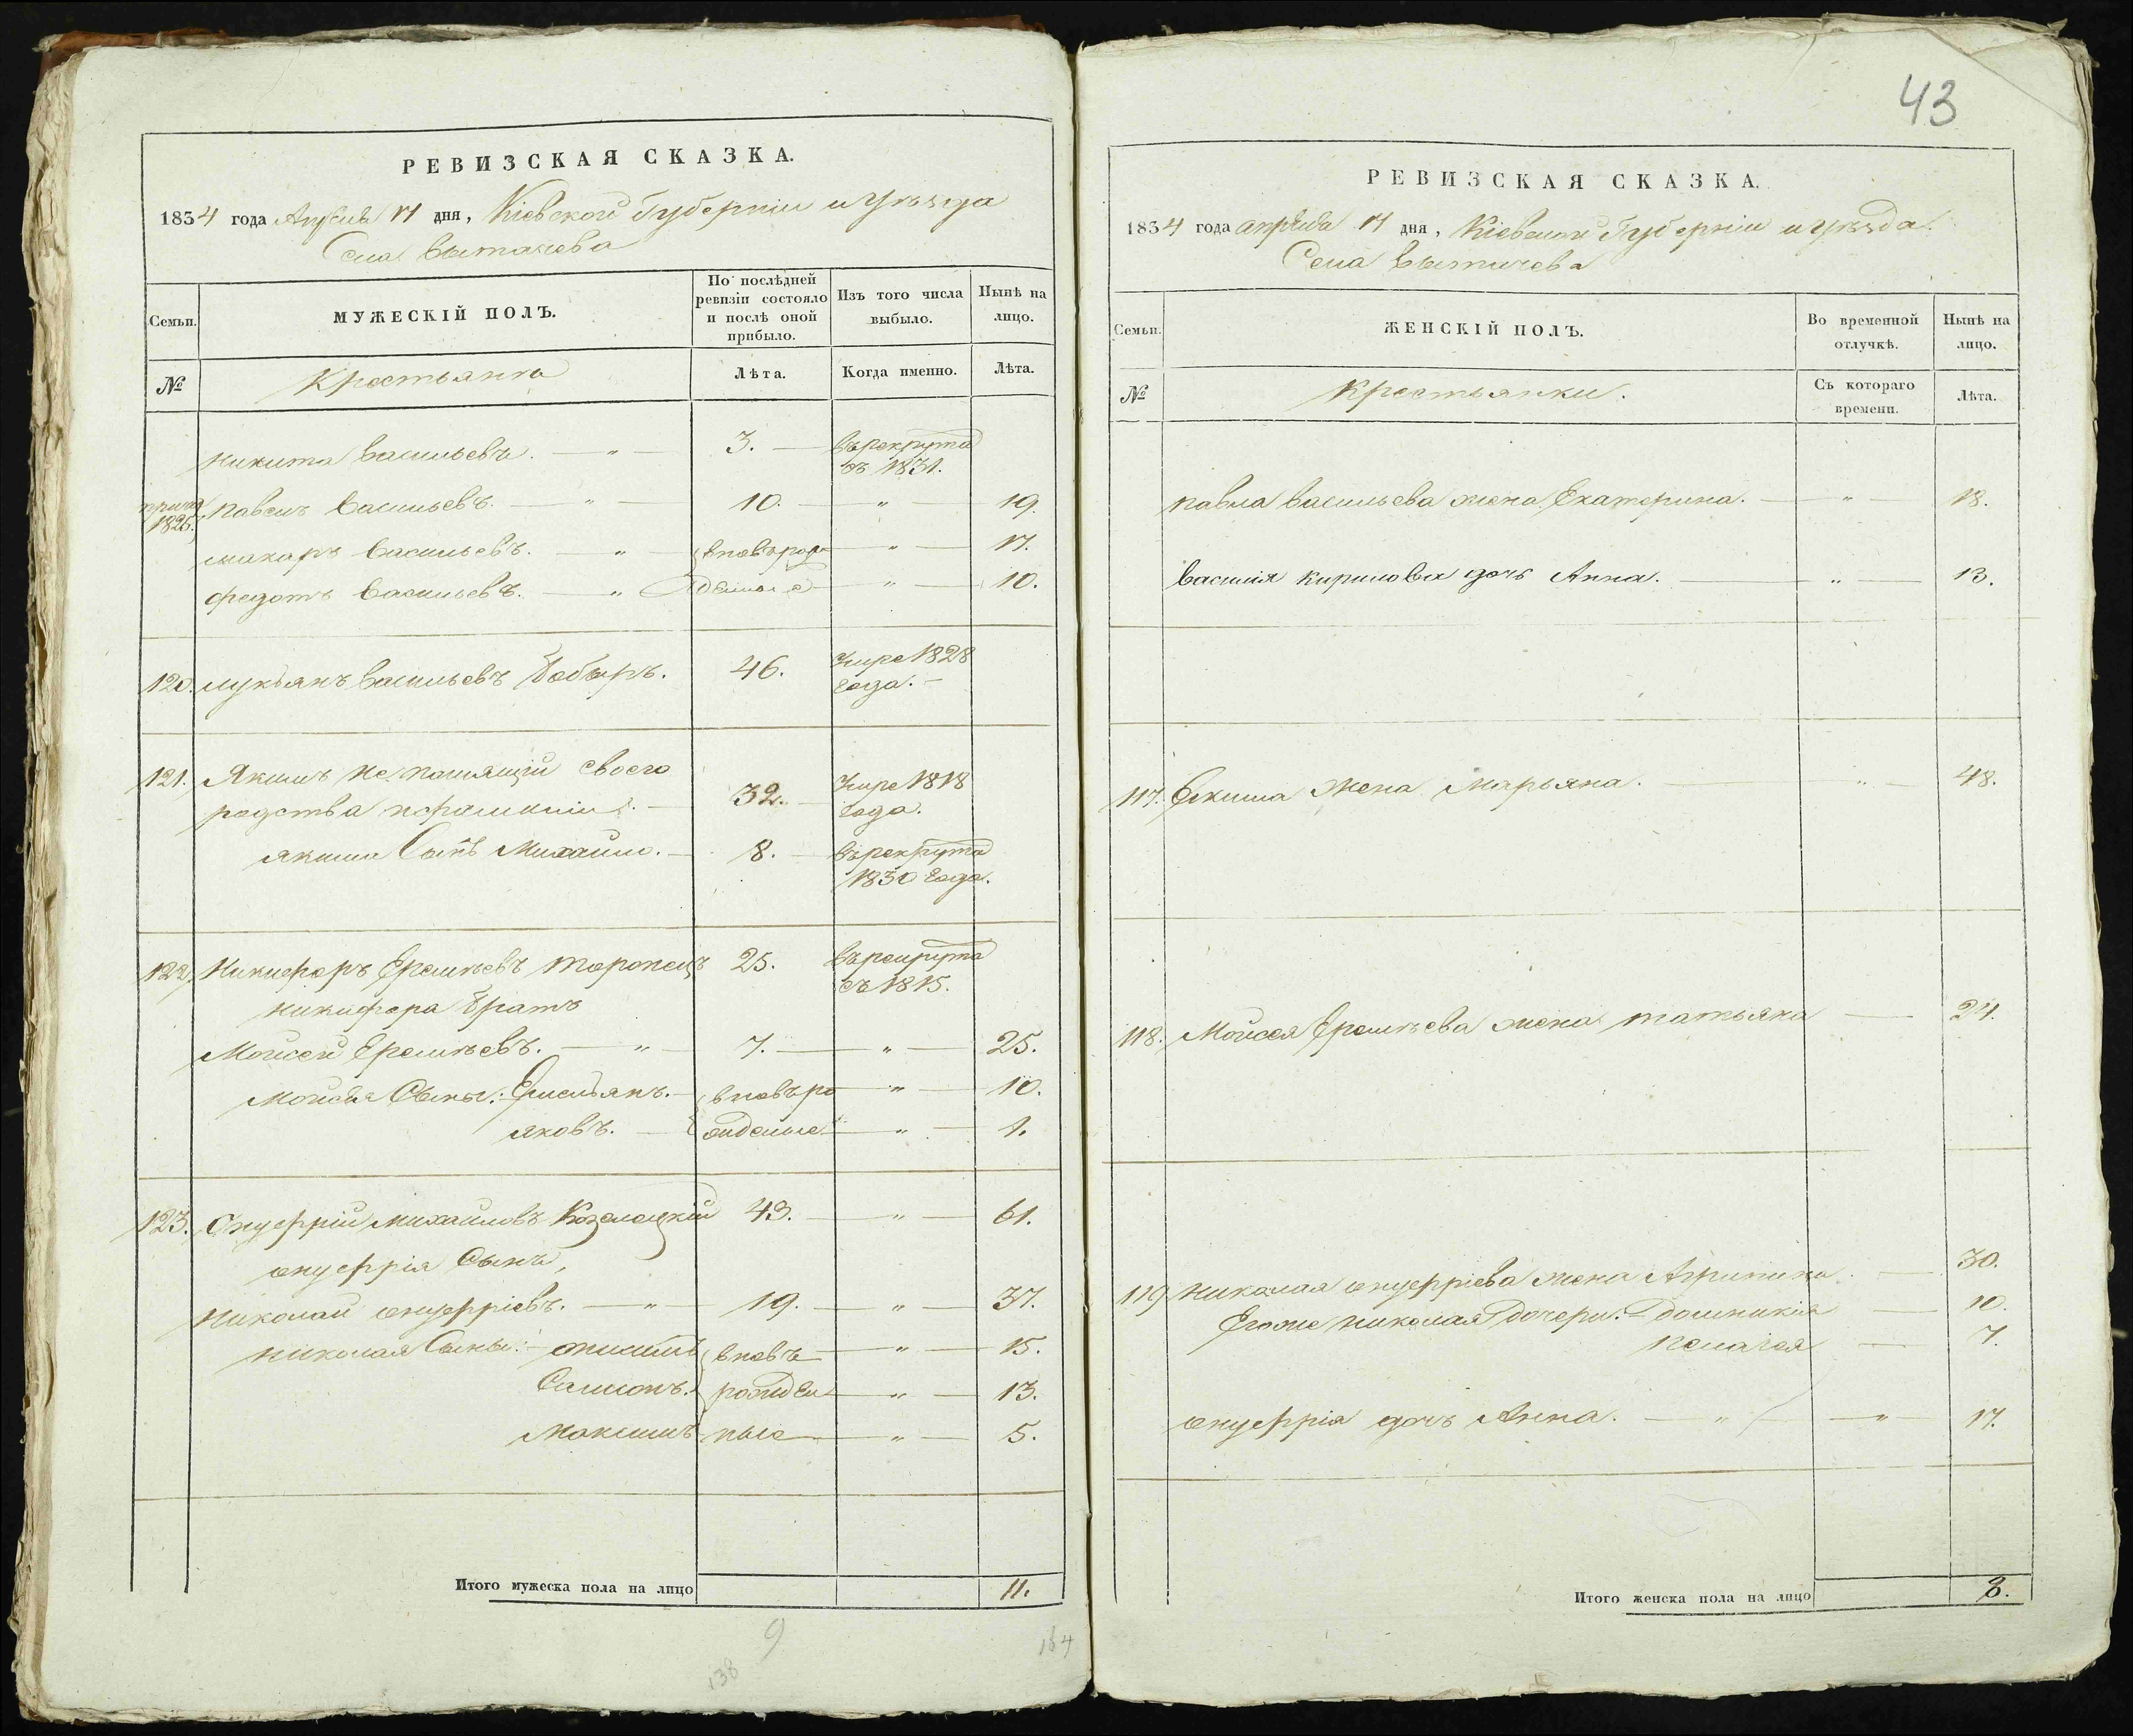 РЕВИЗСКАЯ СКАЗКА.
1834 года Апреля 17 дня, Кіевской Губерніи и Уѣзда
Села Вытачева
Семьи.
МУЖЕСКІЙ ПОЛЪ.
По послѣдней ревизіи состояло и послѣ оной прибыло.
Изъ того числа выбыло.
Нынѣ на лицо.
№
Крестьяне
Лѣта.
Когда именно.
Лѣта.
Никита Васильевъ. — " — 3. — въ рекрута
въ 1831.
1826. Павелъ Васильевъ. — " — 10. — " — 19.
Макаръ Васильевъ. — " — вновь рож — " — 17.
Федотъ Васильевъ. — " — " — 10.
120. Лукьянъ Васильевъ Бобыръ. 46. Умре 1828
года. —
121. Якимъ не помнящій своего
родства 32. — Умре 1818
года.
Якима Сынъ Михайло. — 8. — въ рекрута
1830 года.
122. Никифоръ Еремѣевъ Торопецъ 25. въ рекрута
въ 1815.
Никифора братъ
Мойсей Еремѣевъ. — " — 7. — " — 25.
Мойсея Сыны: Емельянъ. — вновь ро — " — 10.
Яковъ. — жденные — " — 1.
123. Онуфрій Михайловъ Козелецкій 43. — " — 61.
Онуфрія Сынъ,
Николай Онуфріевъ. — " — 19. — " — 37.
Николая Сыны: вновь — " — 15.
Самсонъ. рожден — " — 13.
Максимъ ные — " — 5.
Итого мужеска пола на лицо 11.
9
138
164
43
РЕВИЗСКАЯ СКАЗКА.
1834 года апреля 17 дня, Кіевской Губерніи и уѣзда.
Села Вытачева
Семьи.
ЖЕНСКІЙ ПОЛЪ.
Во временной отлучкѣ.
Нынѣ на лицо.
№
Крестьянки.
Съ котораго времени.
Лѣта.
Павла Васильева жена Екатерина. — " — 18.
Василія Кирилова дочь Анна. — " — 13.
117. Якима жена Марьяна. — " — 48.
118. Мойсея Еремѣева жена Татьяна — 24.
119 Николая Онуфріева жена Агрипина. — 30.
Егоже Николая дочери: Домникія — 10.
Пелагея — 7.
Онуфрія дочь Анна. — " — " — 17.
Итого женска пола на лицо 8.